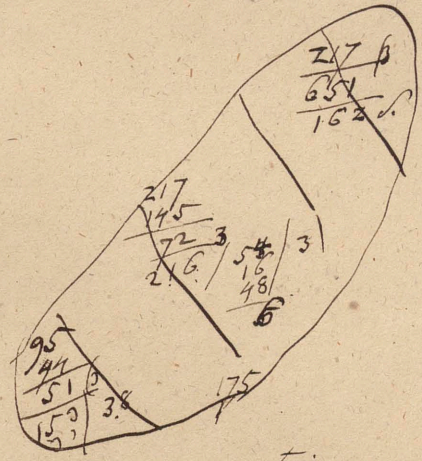 217 3
651
162
217
145
72 3
216
54 3
16
48
6
95
44
51
153
38
175